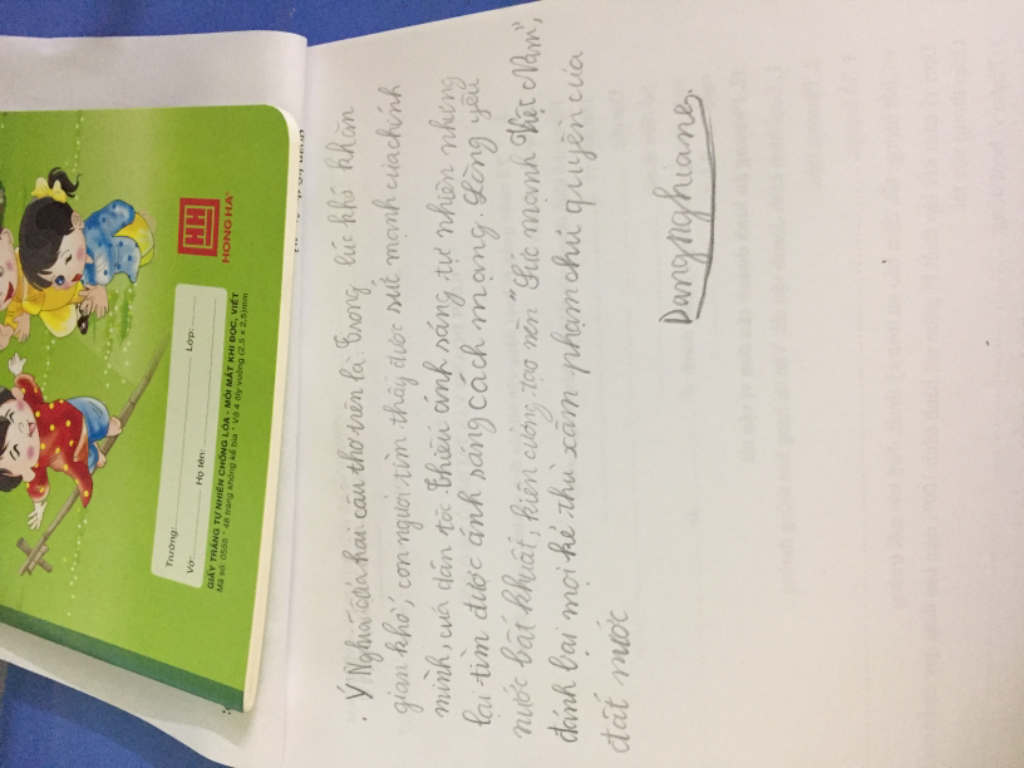 HH
HONG HA
Trường: Lớp:
Vở: Họ tên:
GIẤY TRẮNG TỰ NHIÊN CHỐNG LÓA - MỎI MẮT KHI ĐỌC, VIẾT
Mã số: 0558 * 48 trang không kể bìa * Vở 4 ô ly vuông (2,5 x 2,5)mm
. Ý Nghĩa của hai câu thơ trên là: Trong lúc khó khăn
gian khổ, con người tìm thấy được sức mạnh của chính
mình, của dân tộc. Thiếu ánh sáng tự nhiên nhưng
lại tìm được ánh sáng cách mạng. Lòng yêu
nước bất khuất, kiên cường tạo nên "Sức mạnh Việt Nam",
đánh bại mọi kẻ thù xâm phạm chủ quyền của
đất nước
Dangnghiang